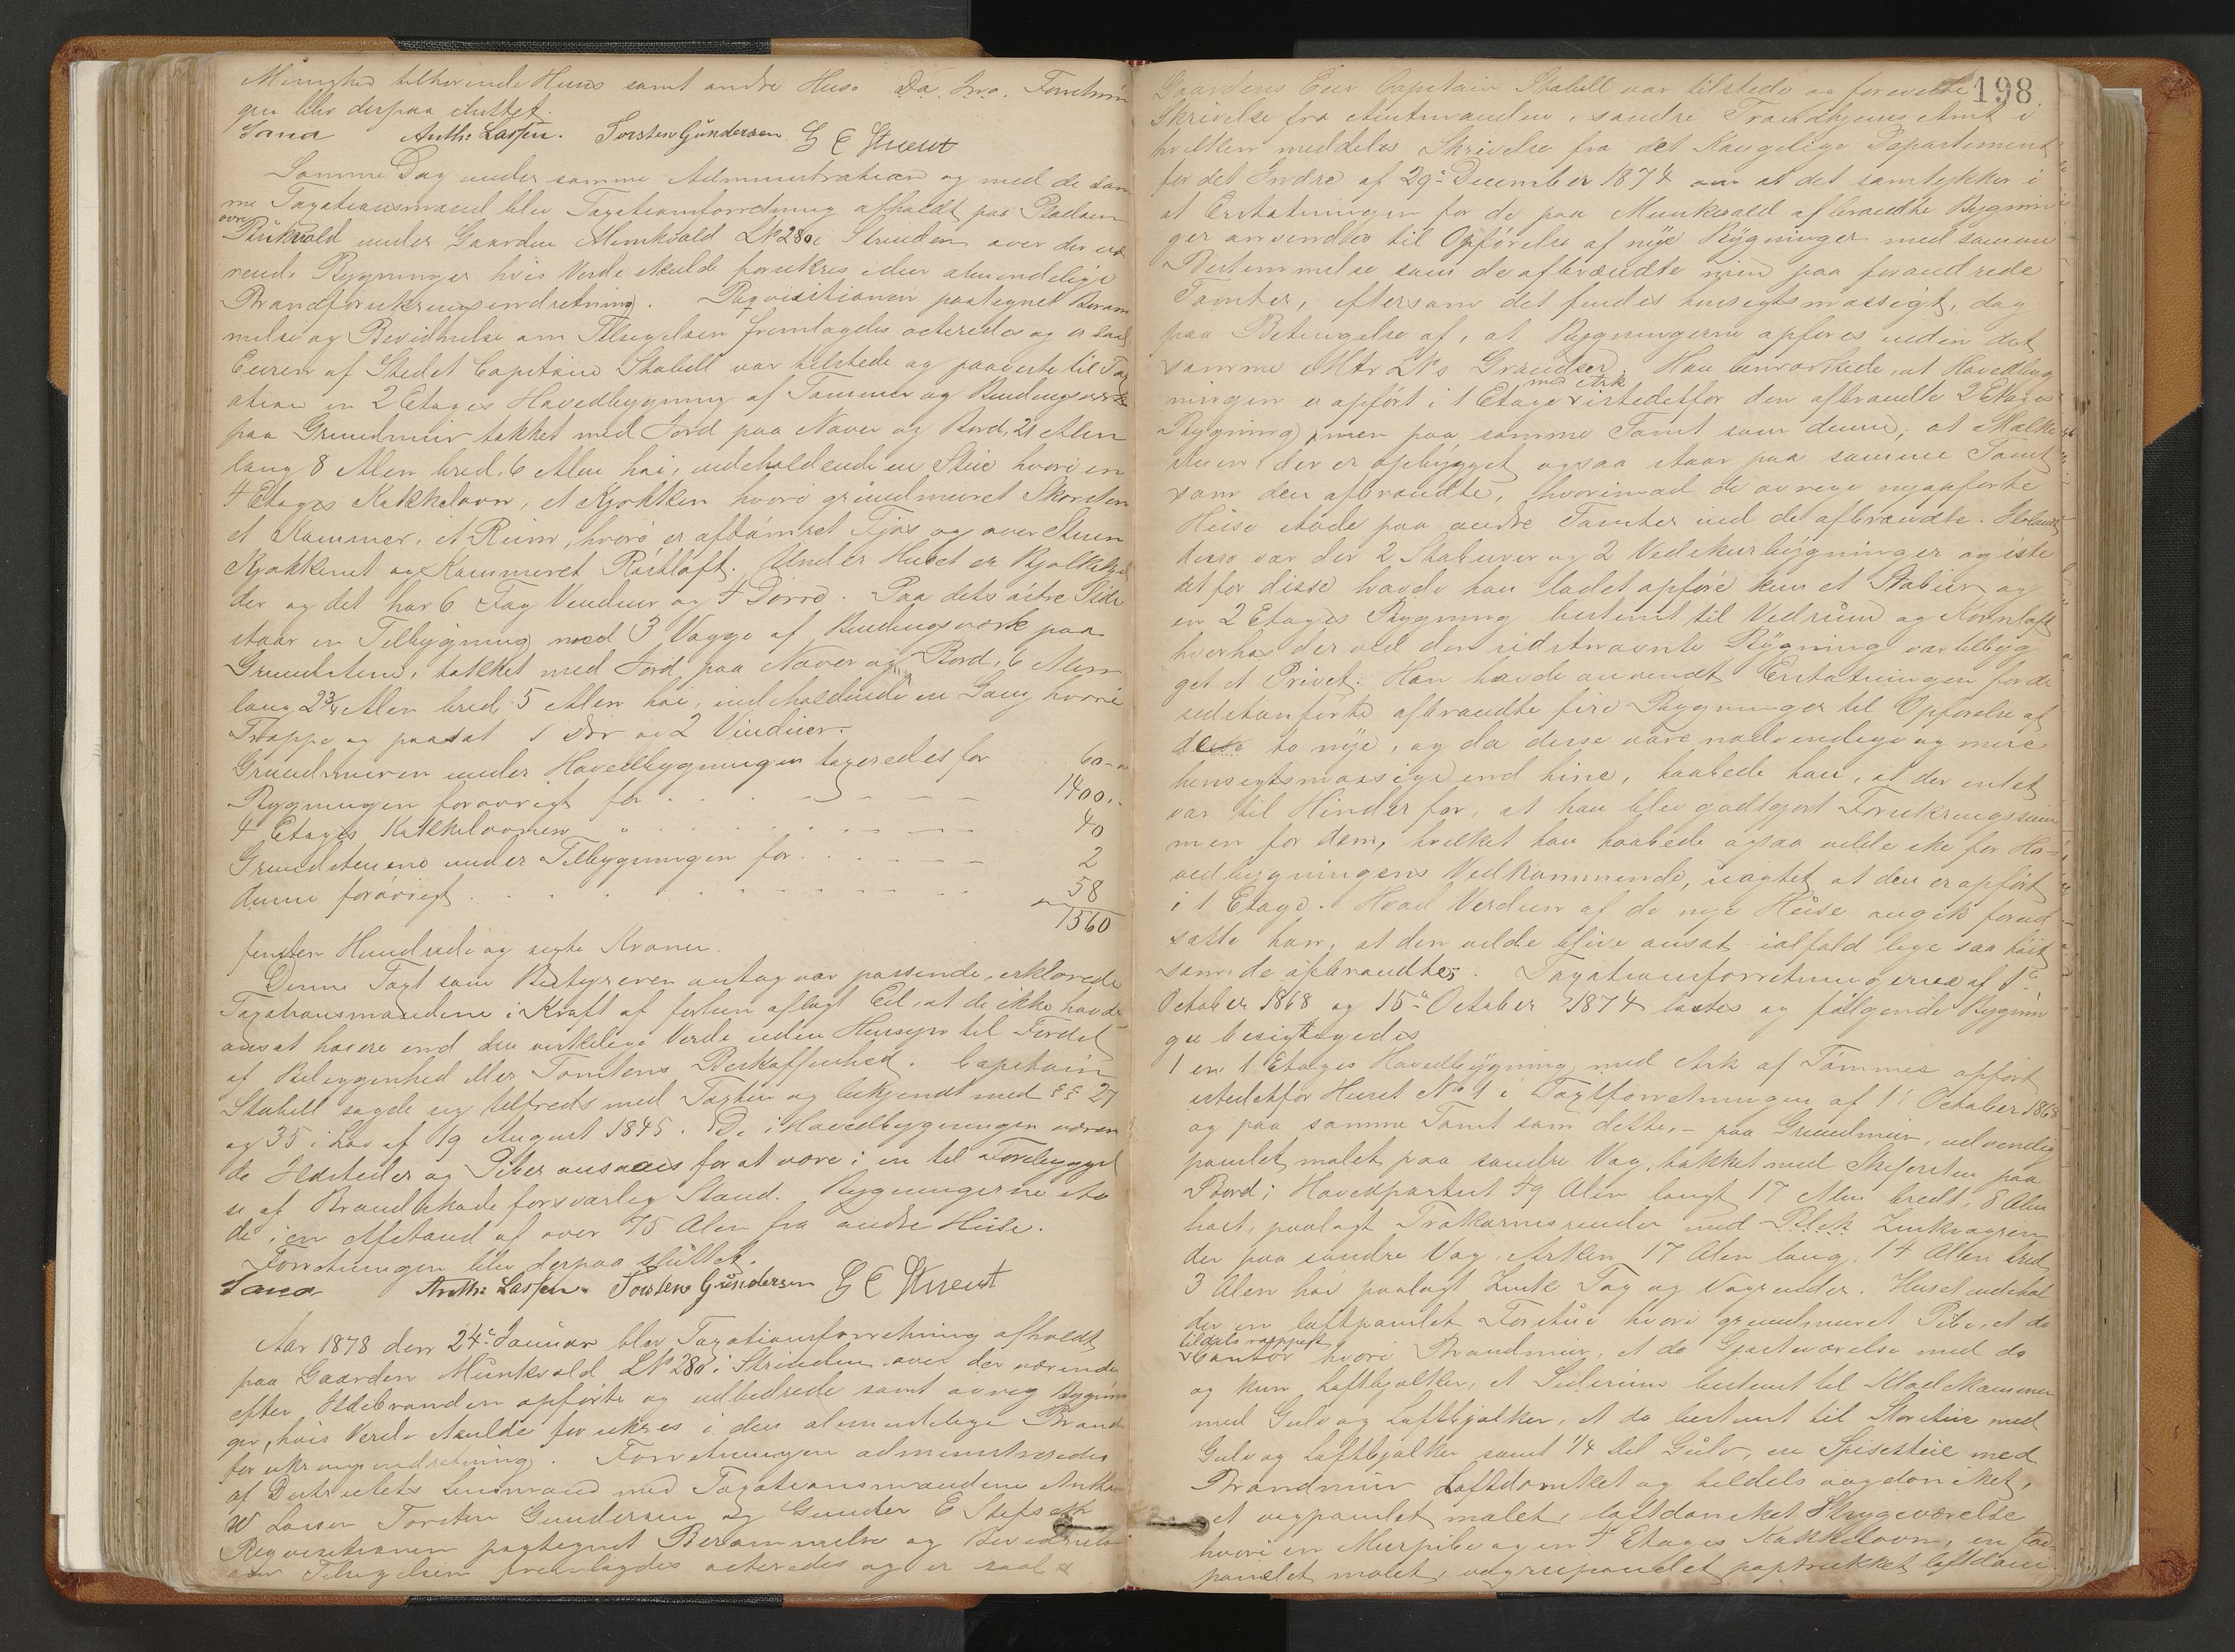 Menighed tilhørende Huus samt andre Huse. Da. Ina. Forretnin
gen blev derpaa sluttet.
Sand Anth: Lassen. Torsten Gundersen G E Stuevt
Samme Dag under samme Administration og med de sam
me Taxationsmænd blev Taxationsforretning afholdt paa Pladsen
øvre
Munkvold under Gaarden Munkvold LNo 280 i Strinden over de væ
rende Bygninger hvis Værdi skulde forsikres i den almindelige
Brandforsikringsindretning. Requisitionen paategnet Beram
melse og Bevidnelse om Tilsigelsen fremlagdes acteredes og er saal
Eieren af Stedet Capitain Stabell var tilstede og paaviste til Tax
ation en 2 Etages Hovedbygning af Tømmer og Bindingsværk
paa Grundmuur takket med Jord paa Næver og Bord, 21 Alen
lang 8 Alen bred, 6 Alen høi, indeholdende en Stue hvori en
4 Etages Kakkelovn, et Kjøkken hvori grundmuret Skorsten
et Kammer, et Rum, hvori er aftømret Fjøs og over Stuen
Kjøkkenet og Kammeret Røstloft. Under Huset er Bjelkekjel
der og det har 6 Fag Vinduer og 4 Dørre. Paa dets østre Side
staar en Tilbygning med 3 Vægge af Bindingsværk paa
Grundstene, takket med Jord paa Næver og Bord, 6 Alen
lang 2¾ Alen bred 5 Alen høi, indeholdende en Gang hvori
Trappe og paasat 1 Dør og 2 Vinduer.
Grundmuren under Hovedbygningen taxeredes for 60
Bygningen forøvrigt for 1400
4 Etages Kakkelovnen " 40
Grundstenene under Tilbygningen for 2
denne forøvrigt 58
1560
femten Hundrede og sexti Kroner.
Denne Taxt som Bestyreren antog var passende, erklærede
Taxationsmændene i Kraft af forhen aflagt Eed, at de ikke havde
ansat høiere end den virkelige Værdi uden Hensyn til Fordel
af Beliggenhed eller Tomtens Beskaffenhed. Capitain
Stabell sagde sig tilfreds med Taxten og bekjendt med §§ 27
og 35 i Lov af 19 August 1845. De i Hovedbygningen væren
de Ildsteder og Piber ansaaes for at være i en til Forebyggel
se af Brandskade forsvarlig Stand. Bygningerne sto
de i en Afstand af over 75 Alen fra andre Huse.
Forretningen blev derpaa sluttet.
Sand Anth: Lassen. Torsten Gundersen G E Stuevt
Aar 1878 den 24de Januar blev Taxationsforretning afholdt
paa Gaarden Munkvold LNo 280 i Strinden over de værende
efter Ildebranden opførte og udbedrede samt øvrig Bygnin
ger, hvis Værdi skulde forsikres i den almindelige Brand
forsikringsindretning. Forretningen administreredes
af Districtets Lensmand med Taxationsmændene Anthon
W Lassen Torsten Gundersen og Gunder E
Requisitionen paategnet Berammelse og Bevidnelse
om Tilsigelsen fremlagdes acteredes og er saal
198.
Gaardens Eier Capitain Stabell var tilstede og foreviste
Skrivelse fra Amtmanden i søndre Trondhjems Amt i
hvilken meddeles Skrivelse fra det Kongelige Departement
for det Indre af 29de December 1874 om at det samtykker i
at Erstatningen for de paa Munkvold afbrændte Bygnin
ger anvendtes til Opførelse af nye Bygninger med samme
Bestemmelse som de afbrændte men paa forandrede
Tomter, eftersom det findes hensigtsmæssigt, dog
paa Betingelse af, at Bygningerne opføres inden det
samme Mtr LNs Grændser. Han bemærkede, at Hovedbyg
med Ark
ningen er opført i 1 Etage istedetfor den afbrændte 2 Etages
Bygning, men paa samme Tomt som denne; at Melke
stuen, der er opbygget ogsaa staar paa samme Tomt
som den afbrændte, hvorimod de øvrige nyopførte
Huse stode paa andre Tomter end de afbrændte. Iblandt
disse var der 2 Stabuur og 2 Vedskurbygninger og iste
detfor disse havde han ladet opføre kun et Stabuur og
en 2 Etages Bygning bestemt til Vedrum og Kornloft
hvorhos der ved den sidstnævnte Bygning var tilbyg
get et Privet. Han havde anvendt Erstatningen for de
sidstanførte afbrændte fire Bygninger til Opførelse af
disse to nye, og da disse vare nødvendige og mere
hensigtsmæssige end hine, haabede han, at der intet
var til Hinder for, at han blev godtgjort Forsikringssum
men for dem, hvilket han haabede ogsaa vilde ske for Ho-
vedbygningens Vedkommende, uagtet at den er opført
i 1 Etage. Hvad Værdien af de nye Huse angik forud
satte han, at den vilde blive ansat ialfald lige saa høit
som de afbrændtes. Taxationsforretningerne af 1te
October 1868 og 15de October 1874 læstes og følgende Bygnin
ger besigtigedes
1 en 1 Etages Hovedbygning med Ark af Tømmer opført
istedetfor Huset No 1 i Taxtforretningen af 1te October 1868
og paa samme Tomt som dette, - paa Grundmuur, udvendig
panelet malet paa søndre Væg, takket med Skifersten paa
Bord; Hovedpartiet 49 Alen langt 17 Alen bredt, 8 Alen
høit, paalagt Trækarnisrender med Zinkvagren
der paa søndre Væg, Arken 17 Alen lang, 14 Alen bred
3 Alen høi paalagt Zink Tag og Vagrender. Huset indehol
der en loftpanelet Forstue hvori grundmuret Pibe, et do
tildels rappet
Contor hvori Brandmuur, et do Gjæsteværelse med do
og kun Loftbjælker, et Siderum bestemt til Klædekammer
med Gulv og Loftbjælker, et do bestemt til Storstue med
Gulv og Loftbjælker samt ¼ Del Gulv, en Spisestue med
Brandmuur Loftdønniket og tildels vægdønniket,
et vægpanelet malet, loftdønniket Strygeværelse
hvori en Murpibe og en 4 Etages Kakkelovn, en
panelet malet, vægrupanelet paptrukket loftdøn